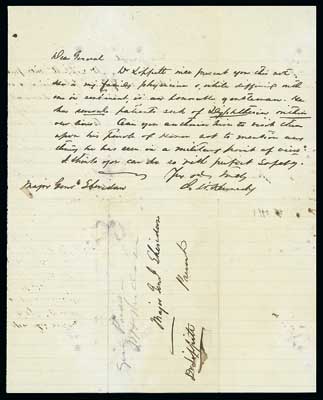 Dear General
Dr Lippitt will present you this note.
He is my family physician &, while differing with
me in sentiment, is an honorable gentleman. He
has several patients sick of Diphtheria within
our lines. Can you authorize him to visit them
upon his parole of honor not to mention any
thing he has seen in a military point of view.
I think you can do so with perfect safety.
Yrs very truly
J. P. Kennedy
Major Genl Sheridan
Major Genl Sheridan
Present
Dr Lippitt